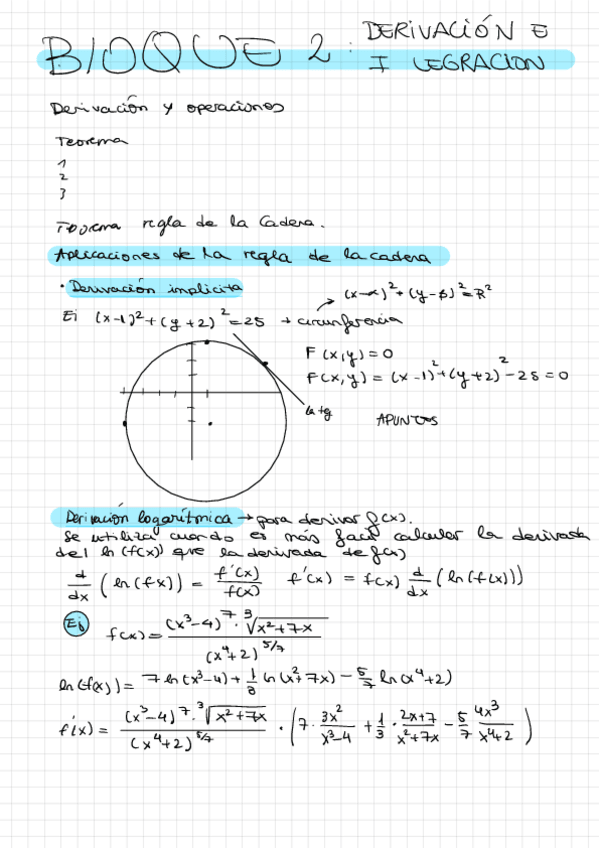 BLOQUE 2: DERIVACIÓN E
I LEGRACION
Derivación y operaciones
Teorema
1
2
3
Teorema regla de la Cadera.
Aplicaciones de la regla de la cadera
· Derivación implicita
(x-α)² + (y-β)² = R²
Ej (x-1)² + (y+2)² = 25 → circunferencia
F(x,y) = 0
F(x,y) = (x-1)² + (y+2)² - 25 = 0
la tg
APUNTOS
Derivación logarítmica → para derivar f(x).
Se utiliza cuando es más facil calcular la derivada
del ln(f(x)) que la derivada de f(x)
d/dx (ln(f(x)) = f'(x)/f(x) f'(x) = f(x) d/dx (ln(f(x)))
Ej f(x) = (x³-4)⁷ · ³√(x²+7x) / (x⁴+2)^5/7
ln(f(x)) = 7 ln(x³-4) + 1/3 ln(x²+7x) - 5/7 ln(x⁴+2)
f'(x) = (x³-4)⁷ · ³√(x²+7x) / (x⁴+2)^5/7 · (7 · 3x²/x³-4 + 1/3 · 2x+7/x²+7x - 5/7 4x³/x⁴+2)